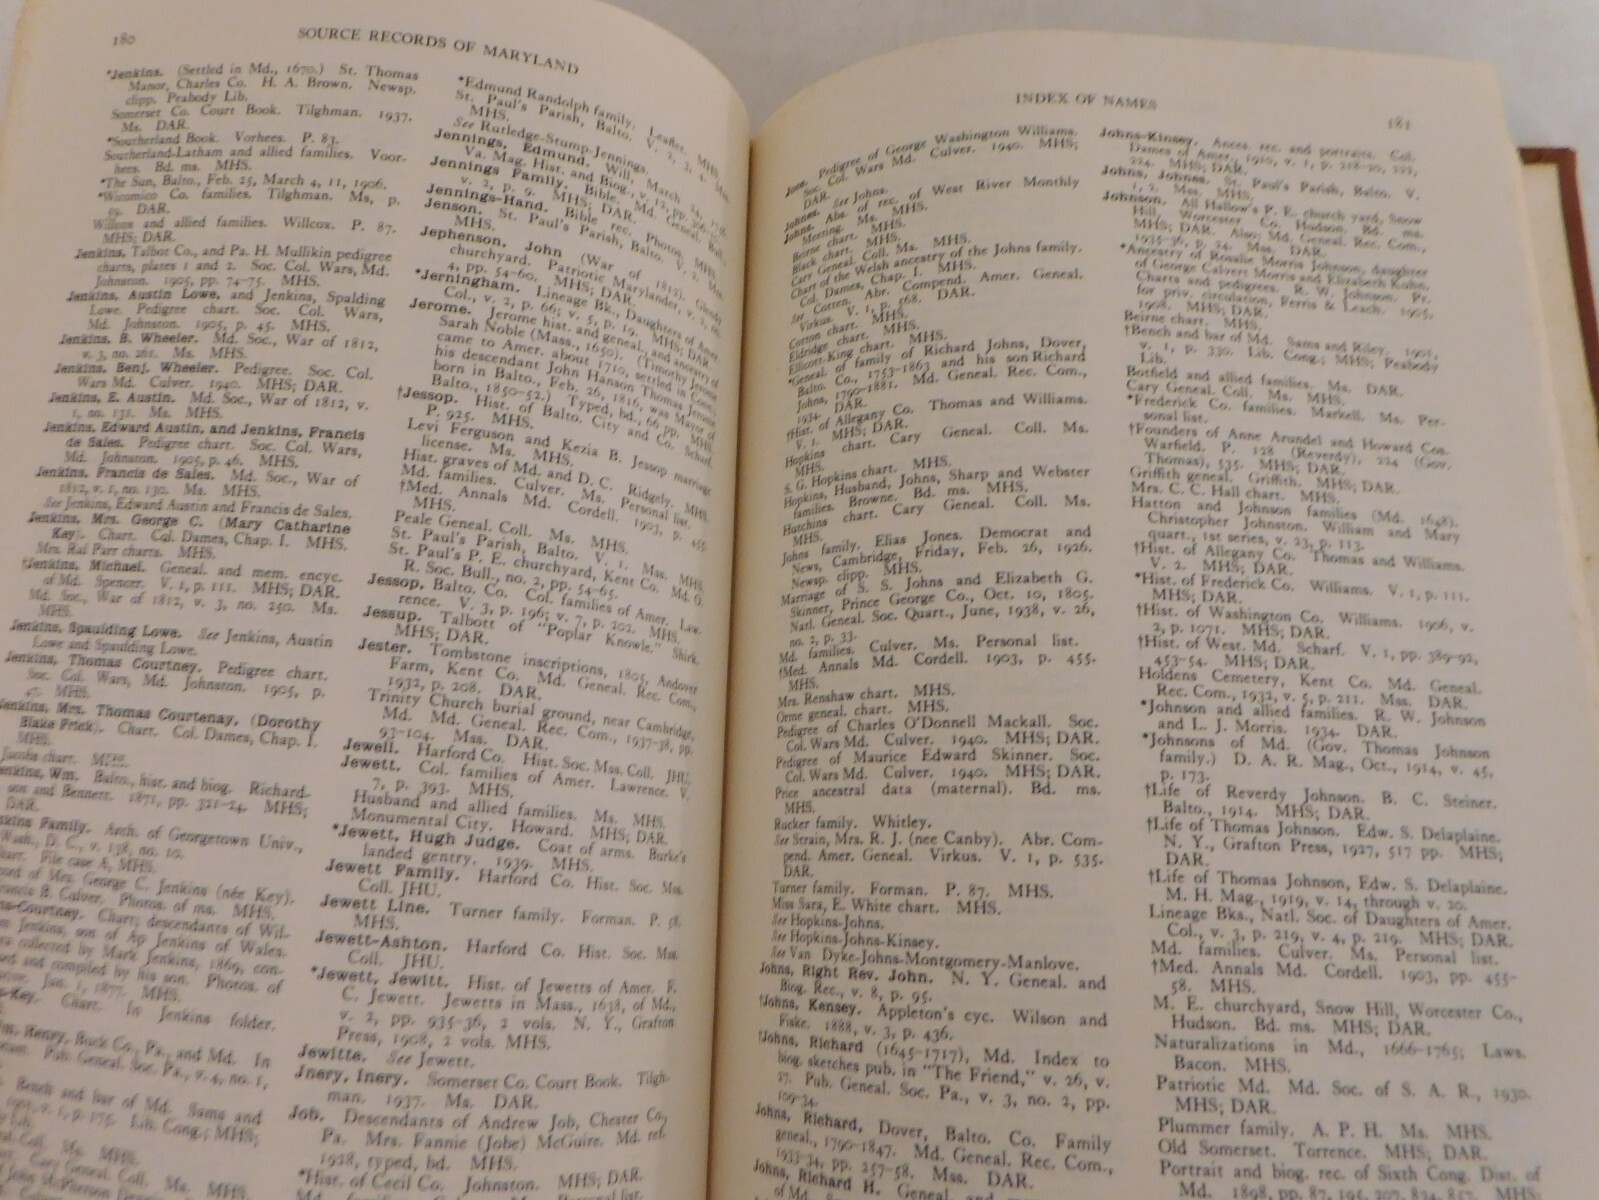 180
SOURCE RECORDS OF MARYLAND
*Jenkins. (Settled in Md., 1670.) St. Thomas
Manor, Charles Co. H. A. Brown. Newsp.
clipp. Peabody Lib.
Somerset Co. Court Book. Tilghman. 1937.
Ms. DAR.
*Southerland Book. Vorhees. P. 83.
Southerland-Latham and allied families. Voor-
hees. Bd. ms. MHS.
*The Sun, Balto., Feb. 25, March 4, 11, 1906.
*Wicomico Co. families. Tilghman. Ms, p.
DAR.
Willcox and allied families. Willcox. P. 87.
MHS; DAR.
Jenkins, Talbot Co., and Pa. H. Mullikin pedigree
charts, plates 1 and 2. Soc. Col. Wars, Md.
Johnston. 1905, pp. 74-75. MHS.
Jenkins, Austin Lowe, and Jenkins, Spalding
Lowe. Pedigree chart. Soc. Col. Wars,
Md. Johnston. 1905, p. 45. MHS.
Jenkins, B. Wheeler. Md. Soc., War of 1812,
v. 3, no. 261. Ms. MHS.
Jenkins, Benj. Wheeler. Pedigree. Soc. Col.
Wars Md. Culver. 1940. MHS; DAR.
Jenkins, E. Austin. Md. Soc., War of 1812, v.
1, no. 131. Ms. MHS.
Jenkins, Edward Austin, and Jenkins, Francis
de Sales. Pedigree chart. Soc. Col. Wars,
Md. Johnston. 1905, p. 46. MHS.
Jenkins, Francis de Sales. Md. Soc., War of
1812, v. 1, no. 130. Ms. MHS.
See Jenkins, Edward Austin and Francis de Sales.
Jenkins, Mrs. George C. (Mary Catharine
Key). Chart. Col. Dames, Chap. I. MHS.
Mrs. Ral Parr charts. MHS.
†Jenkins, Michael. Geneal. and mem. encyc.
of Md. Spencer. V. 1, p. 111. MHS; DAR.
Md. Soc., War of 1812, v. 3, no. 250. Ms.
MHS.
Jenkins, Spaulding Lowe. See Jenkins, Austin
Lowe and Spaulding Lowe.
Jenkins, Thomas Courtney. Pedigree chart.
Soc. Col. Wars, Md. Johnston. 1905, p.
47. MHS.
Jenkins, Mrs. Thomas Courtenay, (Dorothy
Blake Frick). Chart. Col. Dames, Chap. I.
MHS.
Jacobs chart. MHS.
Wm. Balto., hist. and biog. Richard-
son and Bennett. 1871, pp. 321-24. MHS;
DAR.
Family. Arch. of Georgetown Univ.,
Wash., D. C., v. 138, no. 10.
File case A, MHS.
of Mrs. George C. Jenkins (née Key).
Francis B. Culver. Photos. of ms. MHS.
Chart; descendants of Wil-
Jenkins, son of Ap Jenkins of Wales.
collected by Mark Jenkins, 1869, con-
and compiled by his son. Photos. of
Jan. 1, 1877. MHS.
Chart. In Jenkins folder.
Henry, Buck Co., Pa., and Md. In
Pub. Geneal. Soc. Pa., v. 4, no. 1,
Bench and bar of Md. Sams and
v. 1, p. 175. Lib. Cong.; MHS;
Coll. Ms. MHS.
Cary Geneal. Coll. Ms. MHS.
of John McPherson
*Edmund Randolph family. Leaflet. MHS.
St. Paul's Parish, Balto. V. 2, 3, 4. Mss.
MHS.
See Rutledge-Stump-Jennings.
Jennings, Edmund. Will, March
Va. Mag. Hist. and Biog., v. 12, pp.
Jennings Family. Bible. Md. Geneal. Bull.,
v. 2, p. 9. MHS; DAR.
Jennings-Hand. Bible rec. Photos. MHS.
Jenson. St. Paul's Parish, Balto. V. 2. Mss.
MHS.
Jephenson, John (War of 1812). Glendy
churchyard. Patriotic Marylander, v. 2, no.
4, pp. 54-60. MHS; DAR.
*Jerningham. Lineage Bk., Daughters of Amer.
Col., v. 2, p. 66; v. 5, p. 19. MHS; DAR.
Jerome. Jerome hist. and geneal. and ancestry of
Sarah Noble (Mass., 1650). (Timothy Jerome
came to Amer. about 1710, settled in Conn.;
his descendant John Hanson Thomas Jerome
born in Balto., Feb. 26, 1816, was Mayor of
Balto., 1850-52.) Typed, bd., 66 pp. MHS.
†Jessop. Hist. of Balto. City and Co. Scharf.
P. 925. MHS.
Levi Ferguson and Kezia B. Jessop marriage
license. Ms. MHS.
Hist. graves of Md. and D. C. Ridgely. MHS.
Md. families. Culver. Ms. Personal list.
†Med. Annals Md. Cordell. 1903, p. 455.
MHS.
Peale Geneal. Coll. Ms. MHS.
St. Paul's Parish, Balto. V. 1. Mss. MHS.
St. Paul's P. E. churchyard, Kent Co. Md. O.
R. Soc. Bull., no. 2, pp. 54-65.
Jessop, Balto. Co. Col. families of Amer. Law-
rence. V. 3, p. 196; v. 7, p. 202. MHS.
Jessup. Talbott of "Poplar Knowle." Shirk.
MHS; DAR.
Jester. Tombstone inscriptions, 1805, Andover
Farm, Kent Co. Md. Geneal. Rec. Com.,
1932, p. 208. DAR.
Trinity Church burial ground, near Cambridge,
Md. Md. Geneal. Rec. Com., 1937-38, pp.
93-104. Mss. DAR.
Jewell. Harford Co. Hist. Soc. Mss. Coll. JHU.
Jewett. Col. families of Amer. Lawrence. V.
7, p. 393. MHS.
Husband and allied families. Ms. MHS.
Monumental City. Howard. MHS; DAR.
*Jewett, Hugh Judge. Coat of arms. Burke's
landed gentry. 1939. MHS.
Jewett Family. Harford Co. Hist. Soc. Mss.
Coll. JHU.
Jewett Line. Turner family. Forman. P. 58.
MHS.
Jewett-Ashton. Harford Co. Hist. Soc. Mss.
Coll. JHU.
*Jewett, Jewitt. Hist. of Jewetts of Amer. F.
C. Jewett. Jewetts in Mass., 1638, of Md.,
v. 2, pp. 935-36, 2 vols. N. Y., Grafton
Press, 1908, 2 vols. MHS.
Jewitte. See Jewett.
Jnery, Inery. Somerset Co. Court Book. Tilgh-
man. 1937. Ms. DAR.
Job. Descendants of Andrew Job, Chester Co.,
Pa. Mrs. Fannie (Jobe) McGuire. Md. ref.
1928, typed, bd. MHS.
*Hist. of Cecil Co. Johnston. MHS; DAR.
Md. families. Culver. Ms. Personal list.
INDEX OF NAMES
181
Pedigree of George Washington Williams.
Soc. Col. Wars Md. Culver. 1940. MHS;
DAR.
Johnes. See Johns.
Johns. Abs. of rec. of West River Monthly
Meeting. Ms. MHS.
Beirne chart. MHS.
Black chart. MHS.
Cary Geneal. Coll. Ms. MHS.
Chart of the Welsh ancestry of the Johns family.
Col. Dames, Chap. I. MHS.
See Cotten. Abr. Compend. Amer. Geneal.
Virkus. V. 1, p. 568. DAR.
Cotton chart. MHS.
Eldridge chart. MHS.
Ellicott-King chart. MHS.
*Geneal. of family of Richard Johns, Dover,
Balto. Co., 1753-1863 and his son Richard
Johns, 1790-1881. Md. Geneal. Rec. Com.,
1934. DAR.
†Hist. of Allegany Co. Thomas and Williams.
V. 1. MHS; DAR.
Hopkins chart. Cary Geneal. Coll. Ms.
MHS.
S. G. Hopkins chart. MHS.
Hopkins, Husband, Johns, Sharp and Webster
families. Browne. Bd. ms. MHS.
Hutchins chart. Cary Geneal. Coll. Ms.
MHS.
Johns family. Elias Jones. Democrat and
News, Cambridge, Friday, Feb. 26, 1926.
Newsp. clipp. MHS.
Marriage of S. S. Johns and Elizabeth G.
Skinner, Prince George Co., Oct. 10, 1805.
Natl. Geneal. Soc. Quart., June, 1938, v. 26,
no. 2, p. 33.
Md. families. Culver. Ms. Personal list.
†Med. Annals Md. Cordell. 1903, p. 455.
MHS.
Mrs. Renshaw chart. MHS.
Orme geneal. chart. MHS.
Pedigree of Charles O'Donnell Mackall. Soc.
Col. Wars Md. Culver. 1940. MHS; DAR.
Pedigree of Maurice Edward Skinner. Soc.
Col. Wars Md. Culver. 1940. MHS; DAR.
Price ancestral data (maternal). Bd. ms.
MHS.
Rucker family. Whitley.
See Strain, Mrs. R. J. (nee Canby). Abr. Com-
pend. Amer. Geneal. Virkus. V. 1, p. 535.
DAR.
Turner family. Forman. P. 87. MHS.
Miss Sara, E. White chart. MHS.
See Hopkins-Johns.
See Hopkins-Johns-Kinsey.
See Van Dyke-Johns-Montgomery-Manlove.
Johns, Right Rev. John. N. Y. Geneal. and
Biog. Rec., v. 8, p. 95.
†Johns, Kensey. Appleton's cyc. Wilson and
Fiske. 1888, v. 3, p. 436.
†Johns, Richard (1645-1717), Md. Index to
biog. sketches pub. in "The Friend," v. 26, v.
27. Pub. Geneal. Soc. Pa., v. 3, no. 2, pp.
109-34.
Johns, Richard, Dover, Balto. Co. Family
geneal., 1790-1847. Md. Geneal. Rec. Com.,
1933-34, pp. 257-58. Mss. DAR.
Johns, Richard H. Geneal. and
of Md.
Johns-Kinsey. Ances. rec. and portraits. Col.
Dames of Amer., 1910, v. 1, p. 218-20, 222,
224. MHS; DAR.
Johns, Johnes. St. Paul's Parish, Balto. V.
1, 2. Mss. MHS.
Johnson. All Hallow's P. E. church yard, Snow
Hill, Worcester Co. Hudson. Bd. ms.
MHS; DAR. Also: Md. Geneal. Rec. Com.,
1935-36, p. 24. Mss. DAR.
*Ancestry of Rosalie Morris Johnson, daughter
of George Calvert Morris and Elizabeth Kuhn.
Charts and pedigrees. R. W. Johnson. Pr.
for priv. circulation, Ferris & Leach. 1905,
1908. MHS; DAR.
Beirne chart. MHS.
†Bench and bar of Md. Sams and Riley. 1901,
v. 1, p. 330. Lib. Cong.; MHS; Peabody
Lib.
Botfield and allied families. Ms. DAR.
Cary Geneal. Coll. Ms. MHS.
*Frederick Co. families. Markell. Ms. Per-
sonal list.
†Founders of Anne Arundel and Howard Cos.
Warfield. P. 128 (Reverdy), 224 (Gov.
Thomas), 535. MHS; DAR.
Griffith geneal. Griffith. MHS; DAR.
Mrs. C. C. Hall chart. MHS.
Hatton and Johnson families (Md. 1648).
Christopher Johnston. William and Mary
quart., 1st series, v. 23, p. 113.
†Hist. of Allegany Co. Thomas and Williams.
V. 2. MHS; DAR.
*Hist. of Frederick Co. Williams. V. 1, p. 111.
MHS; DAR.
†Hist. of Washington Co. Williams. 1906, v.
2, p. 1071. MHS; DAR.
†Hist. of West. Md. Scharf. V. 1, pp. 389-92,
453-54. MHS; DAR.
Holdens Cemetery, Kent Co. Md. Geneal.
Rec. Com., 1932, v. 5, p. 211. Mss. DAR.
*Johnson and allied families. R. W. Johnson
and L. J. Morris. 1934. DAR.
*Johnsons of Md. (Gov. Thomas Johnson
family.) D. A. R. Mag., Oct., 1914, v. 45,
p. 173.
†Life of Reverdy Johnson. B. C. Steiner.
Balto., 1914. MHS; DAR.
†Life of Thomas Johnson. Edw. S. Delaplaine.
N. Y., Grafton Press, 1927, 517 pp. MHS;
DAR.
†Life of Thomas Johnson, Edw. S. Delaplaine.
M. H. Mag., 1919, v. 14, through v. 20.
Lineage Bks., Natl. Soc. of Daughters of Amer.
Col., v. 3, p. 219, v. 4, p. 219. MHS; DAR.
Md. families. Culver. Ms. Personal list.
†Med. Annals Md. Cordell. 1903, pp. 455-
58. MHS.
M. E. churchyard, Snow Hill, Worcester Co.,
Hudson. Bd. ms. MHS; DAR.
Naturalizations in Md., 1666-1765; Laws.
Bacon. MHS.
Patriotic Md. Md. Soc. of S. A. R., 1930.
MHS; DAR.
Plummer family. A. P. H. Ms. MHS.
Old Somerset. Torrence. MHS; DAR.
Portrait and biog. rec. of Sixth Cong. Dist. of
Md. 1898, pp. 87, 195, 207, 834,